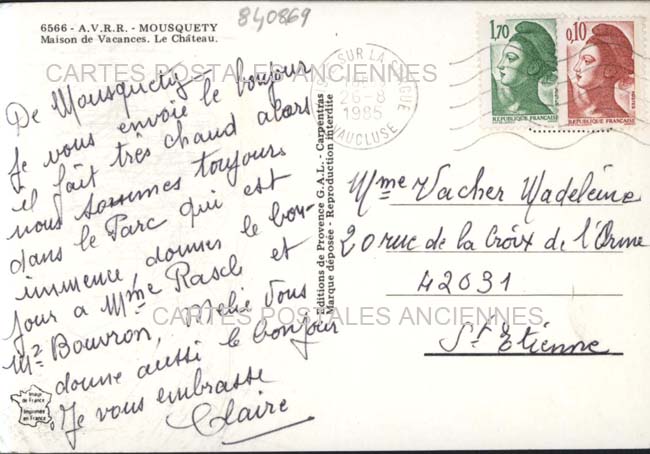 840869
6566 - A.V.R.R. - MOUSQUETY
Maison de Vacances. Le Château.
De Mousquety
Je vous envoie le bonjour
il fait très chaud alors
nous sommes toujours
dans le Parc qui est
immence, donner le bon-
jour a Mme Rasch et
Mr Bouvron, Mélie Vous
donne aussi le bonjour
Je vous embrasse
Claire
Image de France
Imprimée en France
Editions de Provence G.A.L. - Carpentras
Marque déposée - Reproduction interdite
SUR LA SORGUE
26-8
1985
VAUCLUSE
1,70
REPUBLIQUE FRANÇAISE
0,10
POSTES
REPUBLIQUE FRANÇAISE
Mme Vacher Madeleine
20 rue de la Croix de l'Orme
42031
St Etienne
CARTES POSTALES ANCIENNES
CARTES POSTALES ANCIENNES